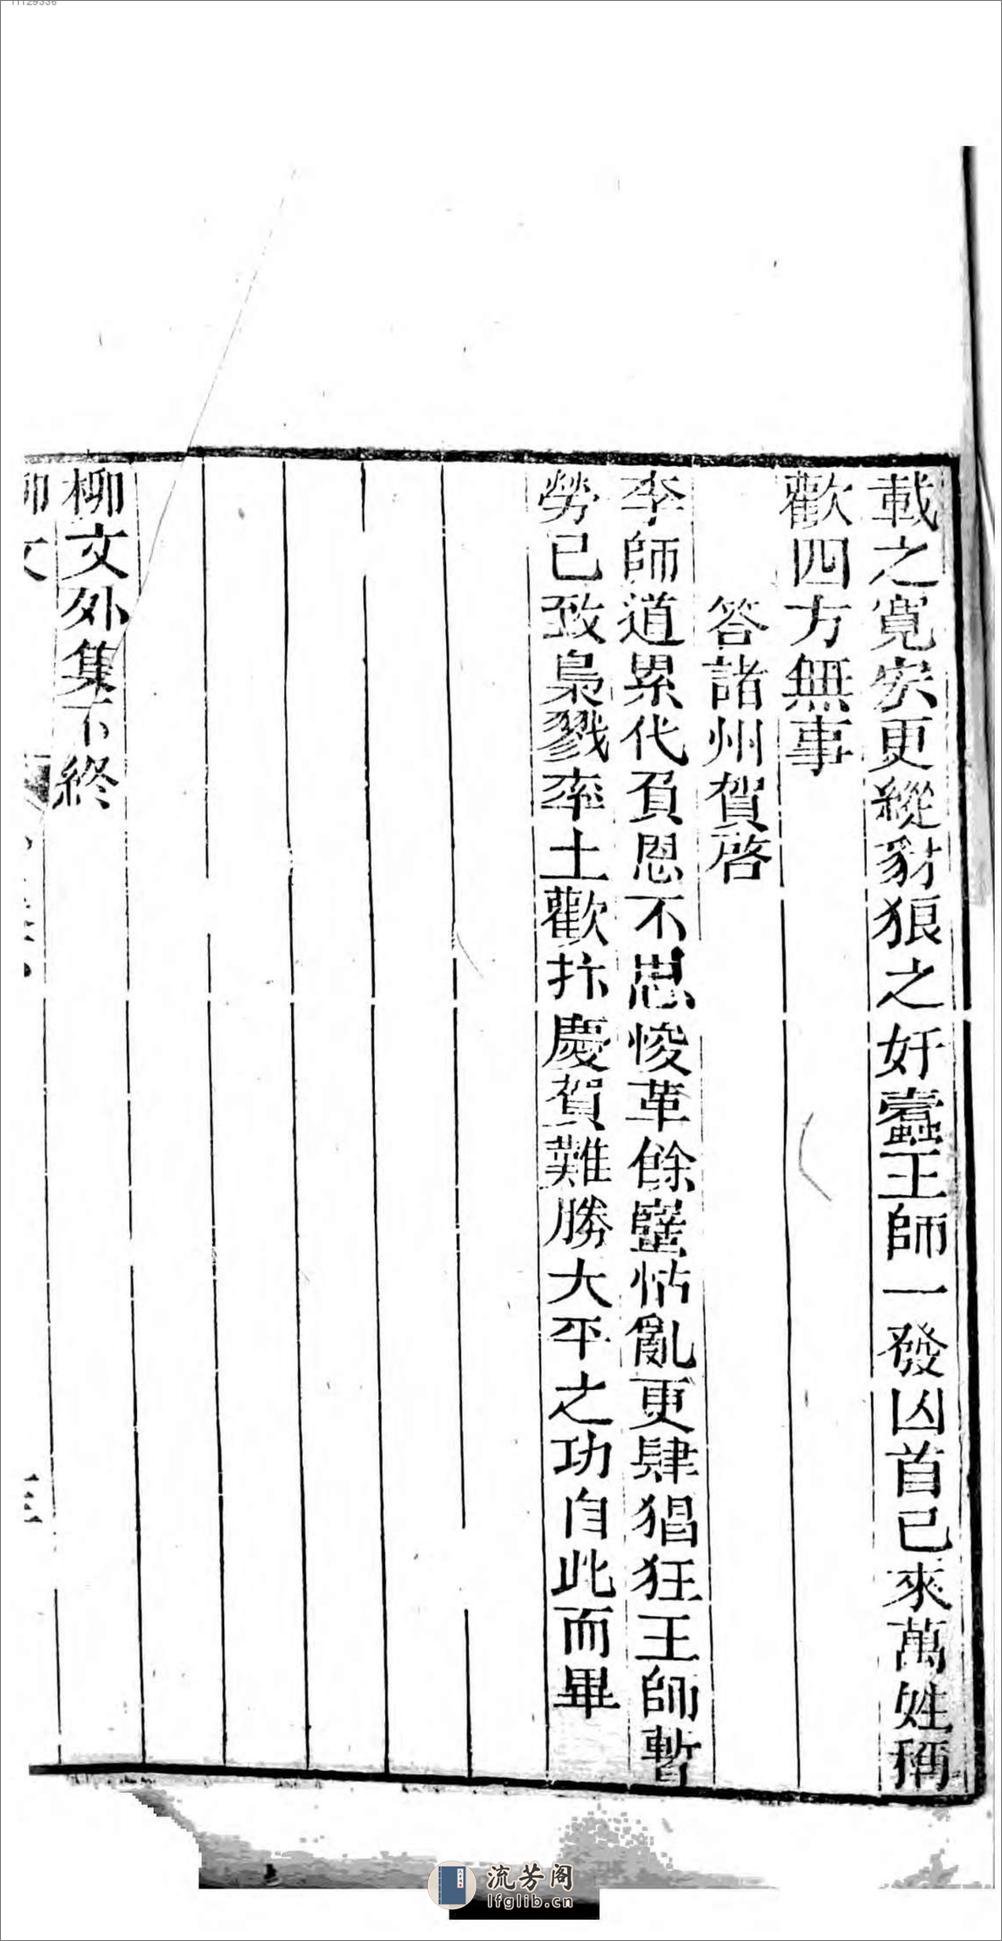 載之寛宏更縱豺狼之奸蠹王師一發凶首已來萬姓稱
歡四方無事
答諸州賀啓
李師道累代負恩不思悛革餘孽怙亂更肆猖狂王師暫
勞已致梟戮率土歡抃慶賀難勝大平之功自此而畢
柳文外集下終
柳文
流芳阁
lfglib.cn